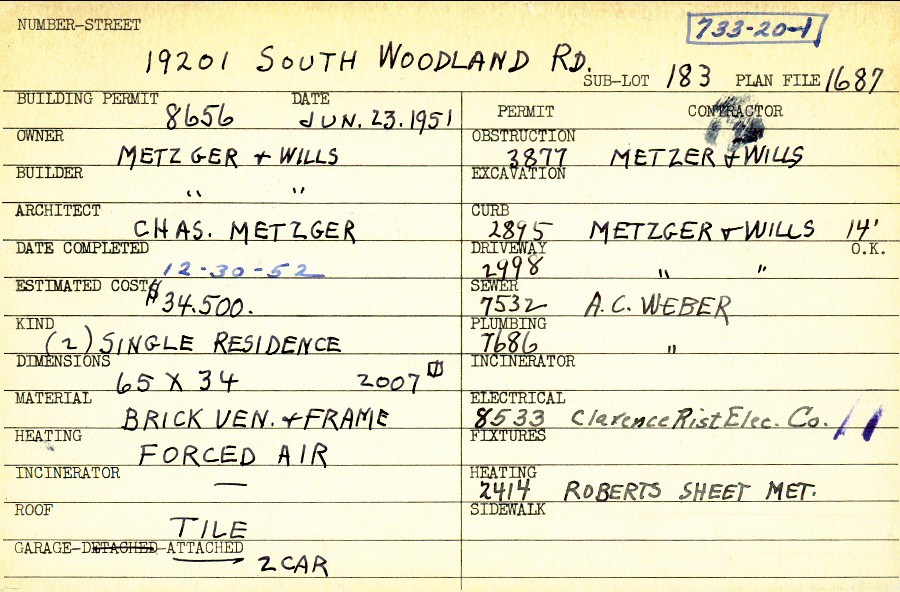 NUMBER-STREET
733-20-1
19201 SOUTH WOODLAND RD.
SUB-LOT 183 PLAN FILE 1687
BUILDING PERMIT 8656 DATE JUN. 23. 1951
PERMIT CONTRACTOR
OWNER METZGER + WILLS
OBSTRUCTION 3877 METZER + WILLS
BUILDER " "
EXCAVATION
ARCHITECT CHAS. METZGER
CURB 2895 METZGER + WILLS 14'
DATE COMPLETED 12-30-52
DRIVEWAY 2998 " " O.K.
ESTIMATED COST $34.500.
SEWER 7532 A.C. WEBER
KIND (2) SINGLE RESIDENCE
PLUMBING 7686 "
DIMENSIONS 65 X 34 2007
INCINERATOR
MATERIAL BRICK VEN. + FRAME
ELECTRICAL 8533 Clarence Rist Elec. Co.
HEATING FORCED AIR
FIXTURES
INCINERATOR —
HEATING 2414 ROBERTS SHEET MET.
ROOF TILE
SIDEWALK
GARAGE-DETACHED-ATTACHED 2 CAR